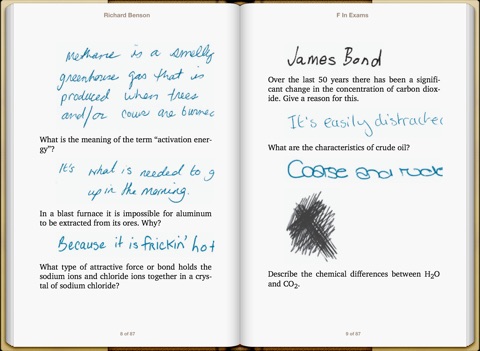 Richard Benson
methane is a smelly
greenhouse gas that is
produced when trees
and/or cows are burned
What is the meaning of the term “activation ener-
gy”?
It's what is needed to g
up in the morning.
In a blast furnace it is impossible for aluminum
to be extracted from its ores. Why?
Because it is frickin' hot
What type of attractive force or bond holds the
sodium ions and chloride ions together in a crys-
tal of sodium chloride?
8 of 87
F In Exams
James Bond
Over the last 50 years there has been a signifi-
cant change in the concentration of carbon diox-
ide. Give a reason for this.
It's easily distracted
What are the characteristics of crude oil?
Coarse and rude
Describe the chemical differences between H₂O
and CO₂.
9 of 87